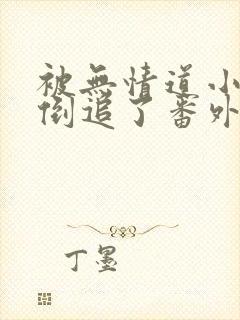 被無情道小
倒追了番外
丁墨